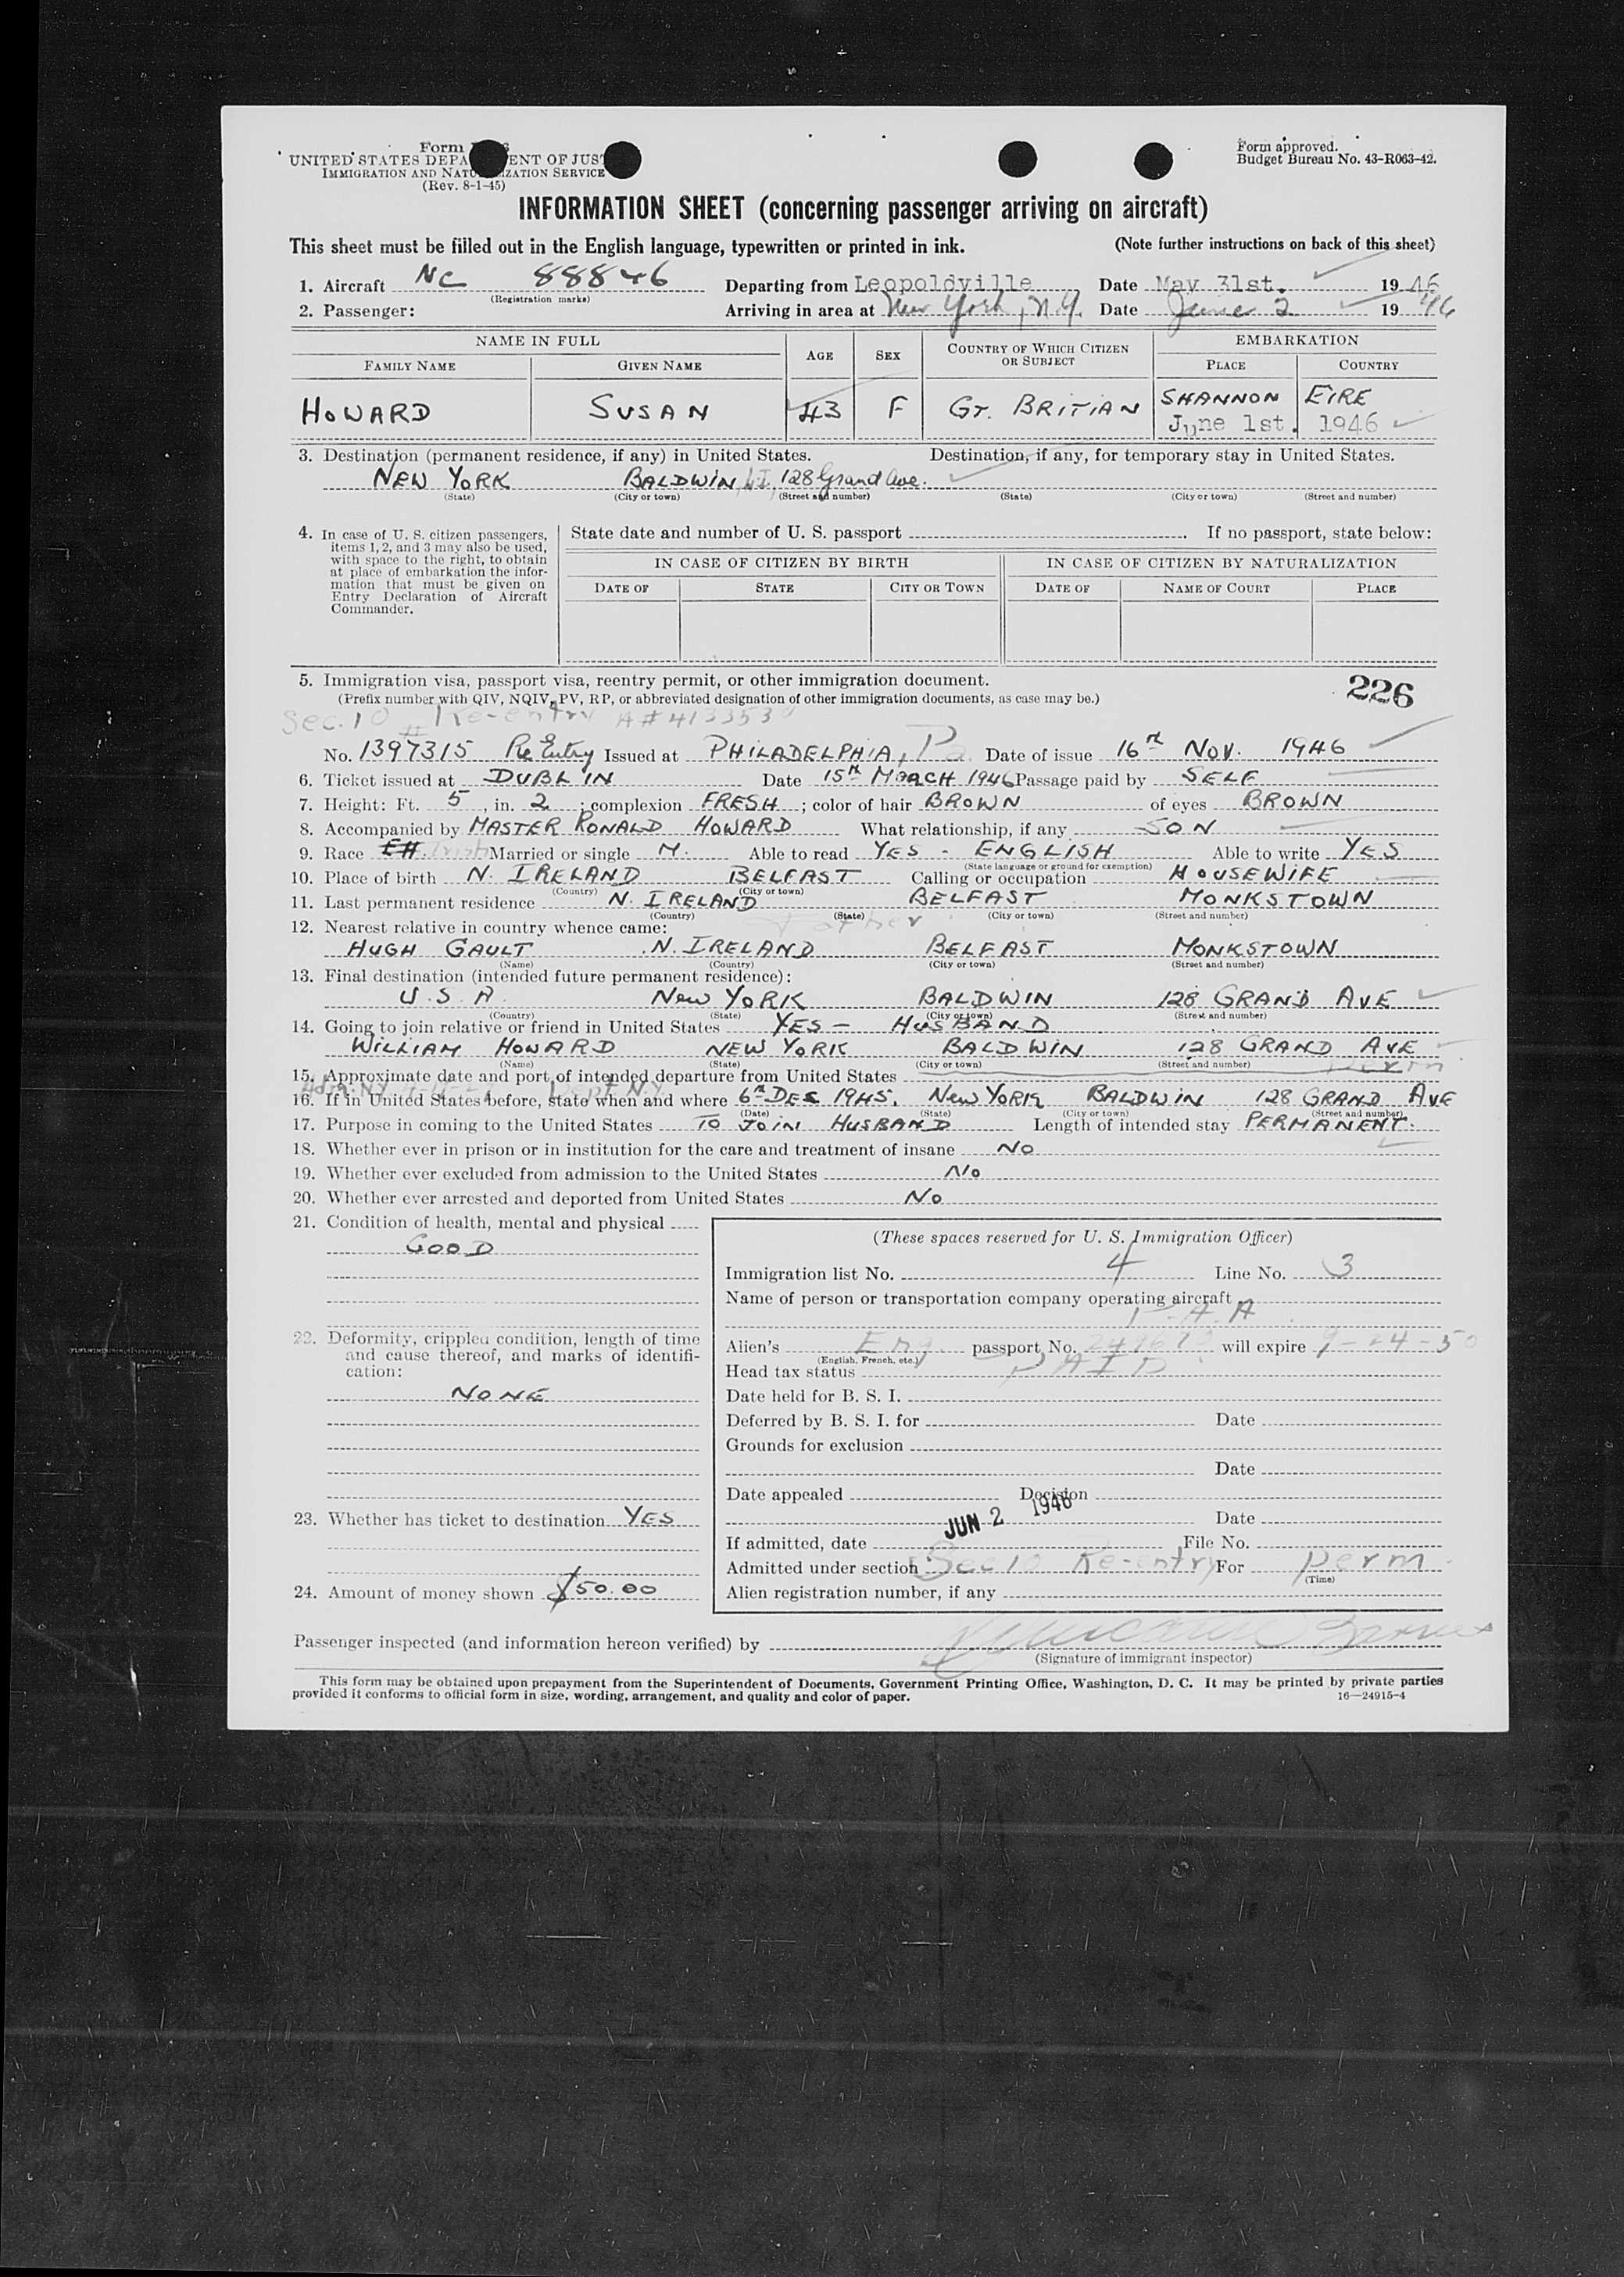 Form I
UNITED STATES DEPA ENT OF JUS
IMMIGRATION AND NATU IZATION SERVICE
(Rev. 8-1-45)
Form approved.
Budget Bureau No. 43-R063-42.
INFORMATION SHEET (concerning passenger arriving on aircraft)
This sheet must be filled out in the English language, typewritten or printed in ink. (Note further instructions on back of this sheet)
1. Aircraft NC 88846 Departing from Leopoldville Date May 31st. 1946
(Registration marks)
2. Passenger: Arriving in area at New York, N.Y. Date June 2 1946
NAME IN FULL AGE SEX COUNTRY OF WHICH CITIZEN OR SUBJECT EMBARKATION
FAMILY NAME GIVEN NAME PLACE COUNTRY
HOWARD SUSAN 43 F GT. BRITIAN SHANNON EIRE
June 1st. 1946
3. Destination (permanent residence, if any) in United States. Destination, if any, for temporary stay in United States.
NEW YORK BALDWIN, L.I. 128 Grand Ave.
(State) (City or town) (Street and number) (State) (City or town) (Street and number)
4. In case of U. S. citizen passengers, items 1, 2, and 3 may also be used, with space to the right, to obtain at place of embarkation the information that must be given on Entry Declaration of Aircraft Commander.
State date and number of U. S. passport . If no passport, state below:
IN CASE OF CITIZEN BY BIRTH IN CASE OF CITIZEN BY NATURALIZATION
DATE OF STATE CITY OR TOWN DATE OF NAME OF COURT PLACE
5. Immigration visa, passport visa, reentry permit, or other immigration document. 226
(Prefix number with QIV, NQIV, PV, RP, or abbreviated designation of other immigration documents, as case may be.)
Sec. 10 # Re-entry
No. 1397315 Re Entry Issued at PHILADELPHIA, Pa. Date of issue 16TH NOV. 1946
6. Ticket issued at DUBLIN Date 15TH MARCH 1946 Passage paid by SELF
7. Height: Ft. 5, in. 2; complexion FRESH; color of hair BROWN of eyes BROWN
8. Accompanied by MASTER RONALD HOWARD What relationship, if any SON
9. Race Irish Married or single M. Able to read YES - ENGLISH Able to write YES
(State language or ground for exemption)
10. Place of birth N. IRELAND BELFAST Calling or occupation HOUSEWIFE
(Country) (City or town)
11. Last permanent residence N. IRELAND BELFAST MONKSTOWN
(Country) (State) (City or town) (Street and number)
12. Nearest relative in country whence came: Father
HUGH GAULT N. IRELAND BELFAST MONKSTOWN
(Name) (Country) (City or town) (Street and number)
13. Final destination (intended future permanent residence):
U.S.A. New YORK BALDWIN 128 GRAND AVE
(Country) (State) (City or town) (Street and number)
14. Going to join relative or friend in United States YES - HUSBAND
WILLIAM HOWARD NEW YORK BALDWIN 128 GRAND AVE
(Name) (State) (City or town) (Street and number)
15. Approximate date and port of intended departure from United States Perm
16. If in United States before, state when and where 6TH DEC 1945. New YORK BALDWIN 128 GRAND AVE
(Date) (State) (City or town) (Street and number)
17. Purpose in coming to the United States TO JOIN HUSBAND Length of intended stay PERMANENT.
18. Whether ever in prison or in institution for the care and treatment of insane No
19. Whether ever excluded from admission to the United States No
20. Whether ever arrested and deported from United States No
21. Condition of health, mental and physical
GOOD
22. Deformity, crippled condition, length of time and cause thereof, and marks of identification:
NONE
23. Whether has ticket to destination YES
24. Amount of money shown $50.00
(These spaces reserved for U. S. Immigration Officer)
Immigration list No. 4 Line No. 3
Name of person or transportation company operating aircraft
P.A.A.
Alien's Eng. passport No. will expire 9-24-50
(English, French, etc.)
Head tax status PAID
Date held for B. S. I.
Deferred by B. S. I. for Date
Grounds for exclusion
Date
Date appealed Decision
Date
JUN 2 1946
If admitted, date File No.
Admitted under section Sec 10 Re-entry For perm
(Time)
Alien registration number, if any
Passenger inspected (and information hereon verified) by
(Signature of immigrant inspector)
This form may be obtained upon prepayment from the Superintendent of Documents, Government Printing Office, Washington, D. C. It may be printed by private parties
provided it conforms to official form in size, wording, arrangement, and quality and color of paper. 16—24915-4